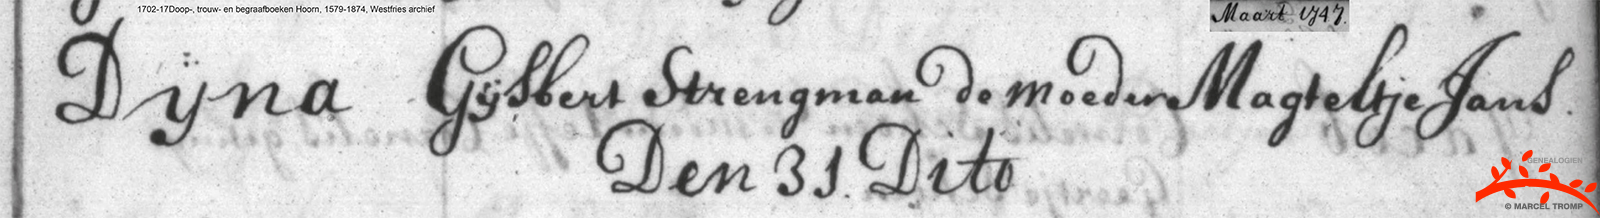 1702-17Doop-, trouw- en begraafboeken Hoorn, 1579-1874, Westfries archief
Maart 1747.
Dÿna Gÿsbert Strengman de moeder Magteltje Jans.
Den 31. Dito
GENEALOGIEN
© MARCEL TROMP